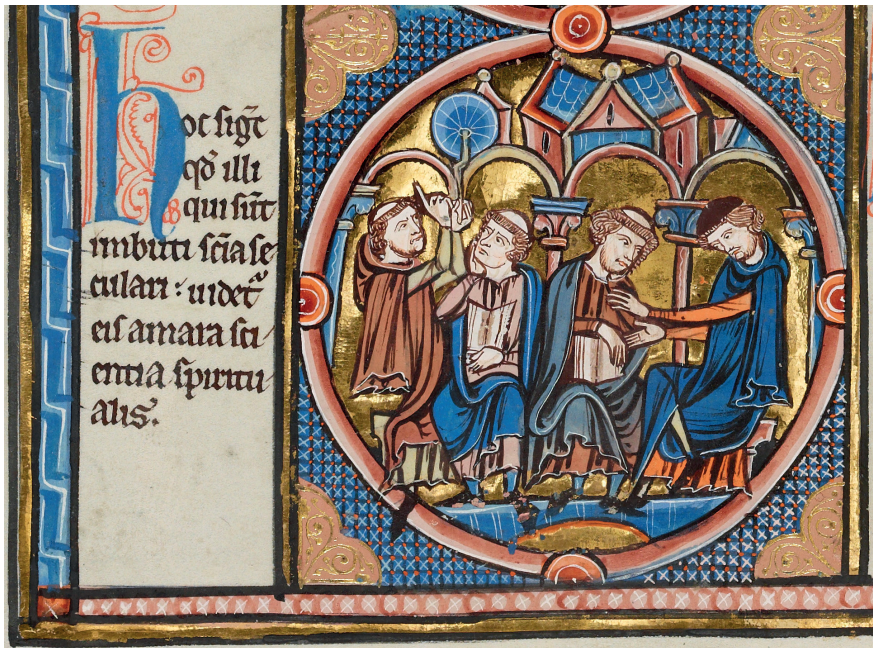 hoc sigt̄
qō illi
qui sūt
imbuti sc̄ia se
culari : uidet᷑
eis amara sci
entia spiritu
alis.